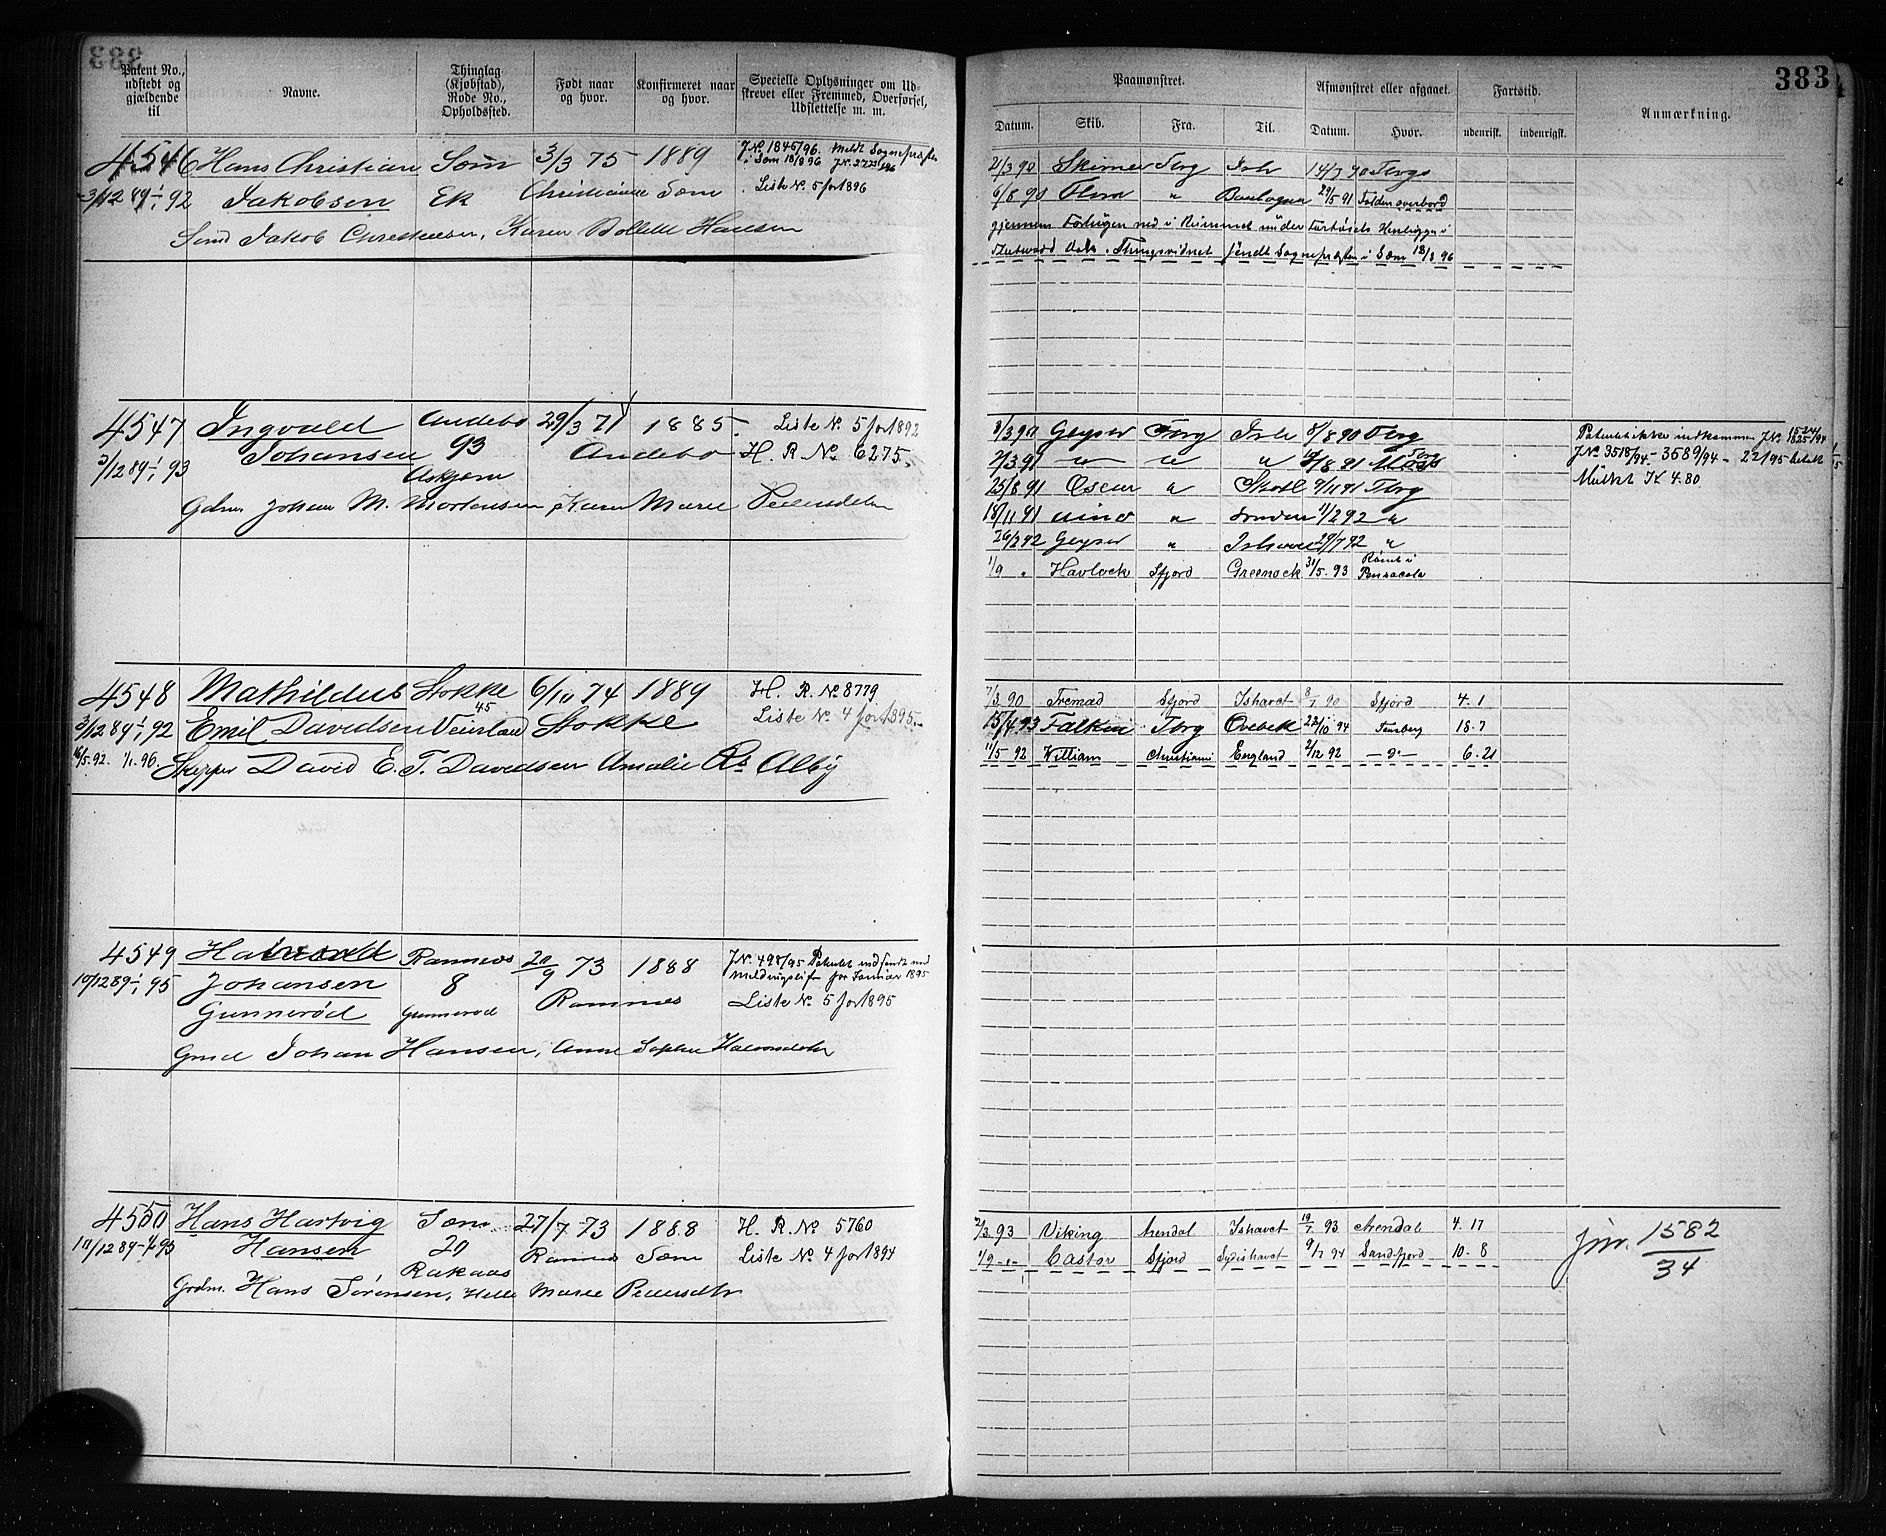 383
Patent No., udstedt og gjældende til
Navne.
Thinglag (Kjøbstad), Rode No., Opholdssted.
Født naar og hvor.
Konfirmeret naar og hvor.
Specielle Oplysninger om Udskrevet eller Fremmed, Overførsel, Udslettelse m. m.
4546 Hans Christian Sæm 3/3 75 1889 J№ 1845/96. Meldt Sognepræsten
i Sæm 18/8 96
3/12 89 – 1/1 92 Jakobsen Ek Christiane Sæm Liste № 5 for 1896
Jakob Christensen, Karen Bollette Hansen
4547 Ingvald Andebo 29/3 71 1885. Liste № 5 for 1892
Johansen 93 Andebo H. R. № 6275.
3/12 89 – 1/1 93 Askjem
Gdm. Johan M. Mortensen, Karen Marie Pedersdatter
4548 Mathildus Stokke 6/10 74 1889 H. R. № 8779
45
3/12 89 – 1/1 92 Emil Davidsen Stokke Liste № 4 for 1895.
16/5 92. 1/1. 96. Skipper David E. T. Davidsen Amalie Alby
4549 Halvord Ramnes 20/9 73 1888 J№ 498/95 Patentet indsendt med
10/12 89 – 1/1 95 Johansen 8 Ramnes for Januar 1895
Gunnerød Gunnerød Liste № 5 for 1895
Johan Hansen, Anne Sophie Halvorsdatter
4550 Hans Hartvig Sæm 27/7 73 1888 H. R. № 5760
10/12 89 – 1/1 95 Hansen 20 Ramnes Sæm Liste № 4 for 1894
Rakaas
Grdm. Hans Sørensen, Helle Marie Pedersdtr
383
Paamønstret.
Afmønstret eller afgaaet.
Fartstid.
Anmærkning.
Datum. Skib. Fra. Til. Datum. Hvor. udenrigsk. indenrigsk.
21/3 90 Skirner Tbrg Ish 14/7 90 Tbrg
6/8 90 Flora " Boulogne 29/5 91 Falden overbord
gjennem i Rummet under Fartøiets Henliggen i
Dok. Thingsvidnet sendt Sognepræsten i Sæm 18/8 96
8/3 90 Geyser Tbrg Ish 8/8 90 Tbrg
"
25/8 91 Oscar " 9/11 91 Tbrg
18/11 91 " London 11/2 92 "
26/2 92 Geyser " Ishavet 29/7 92 "
1/9 " Havlock Sfjord Greenock 31/5. 93 Rømt i Pensacola
Patentet ikke indkommen J№ 1524/94 1825/94
J№ 3518/94 – 3589/94 – 22/95 betalt
Mulkt K 4.80
7/3 90 Fremad Sfjord Ishavet 8/7 90 Sfjord 4. 1
15/4 93 Falken Tbrg 22/10 94 Tønsberg 18. 7
11/5 92 William Christiania England 2/12 92 – d° – 6. 21
2/3 93 Viking Arendal Ishavet 19/7 93 Arendal 4. 17
1/9 -"- Castor Sfjord Sydishavet 9/7 94 Sandefjord 10. 8
Jnr. 1582/34